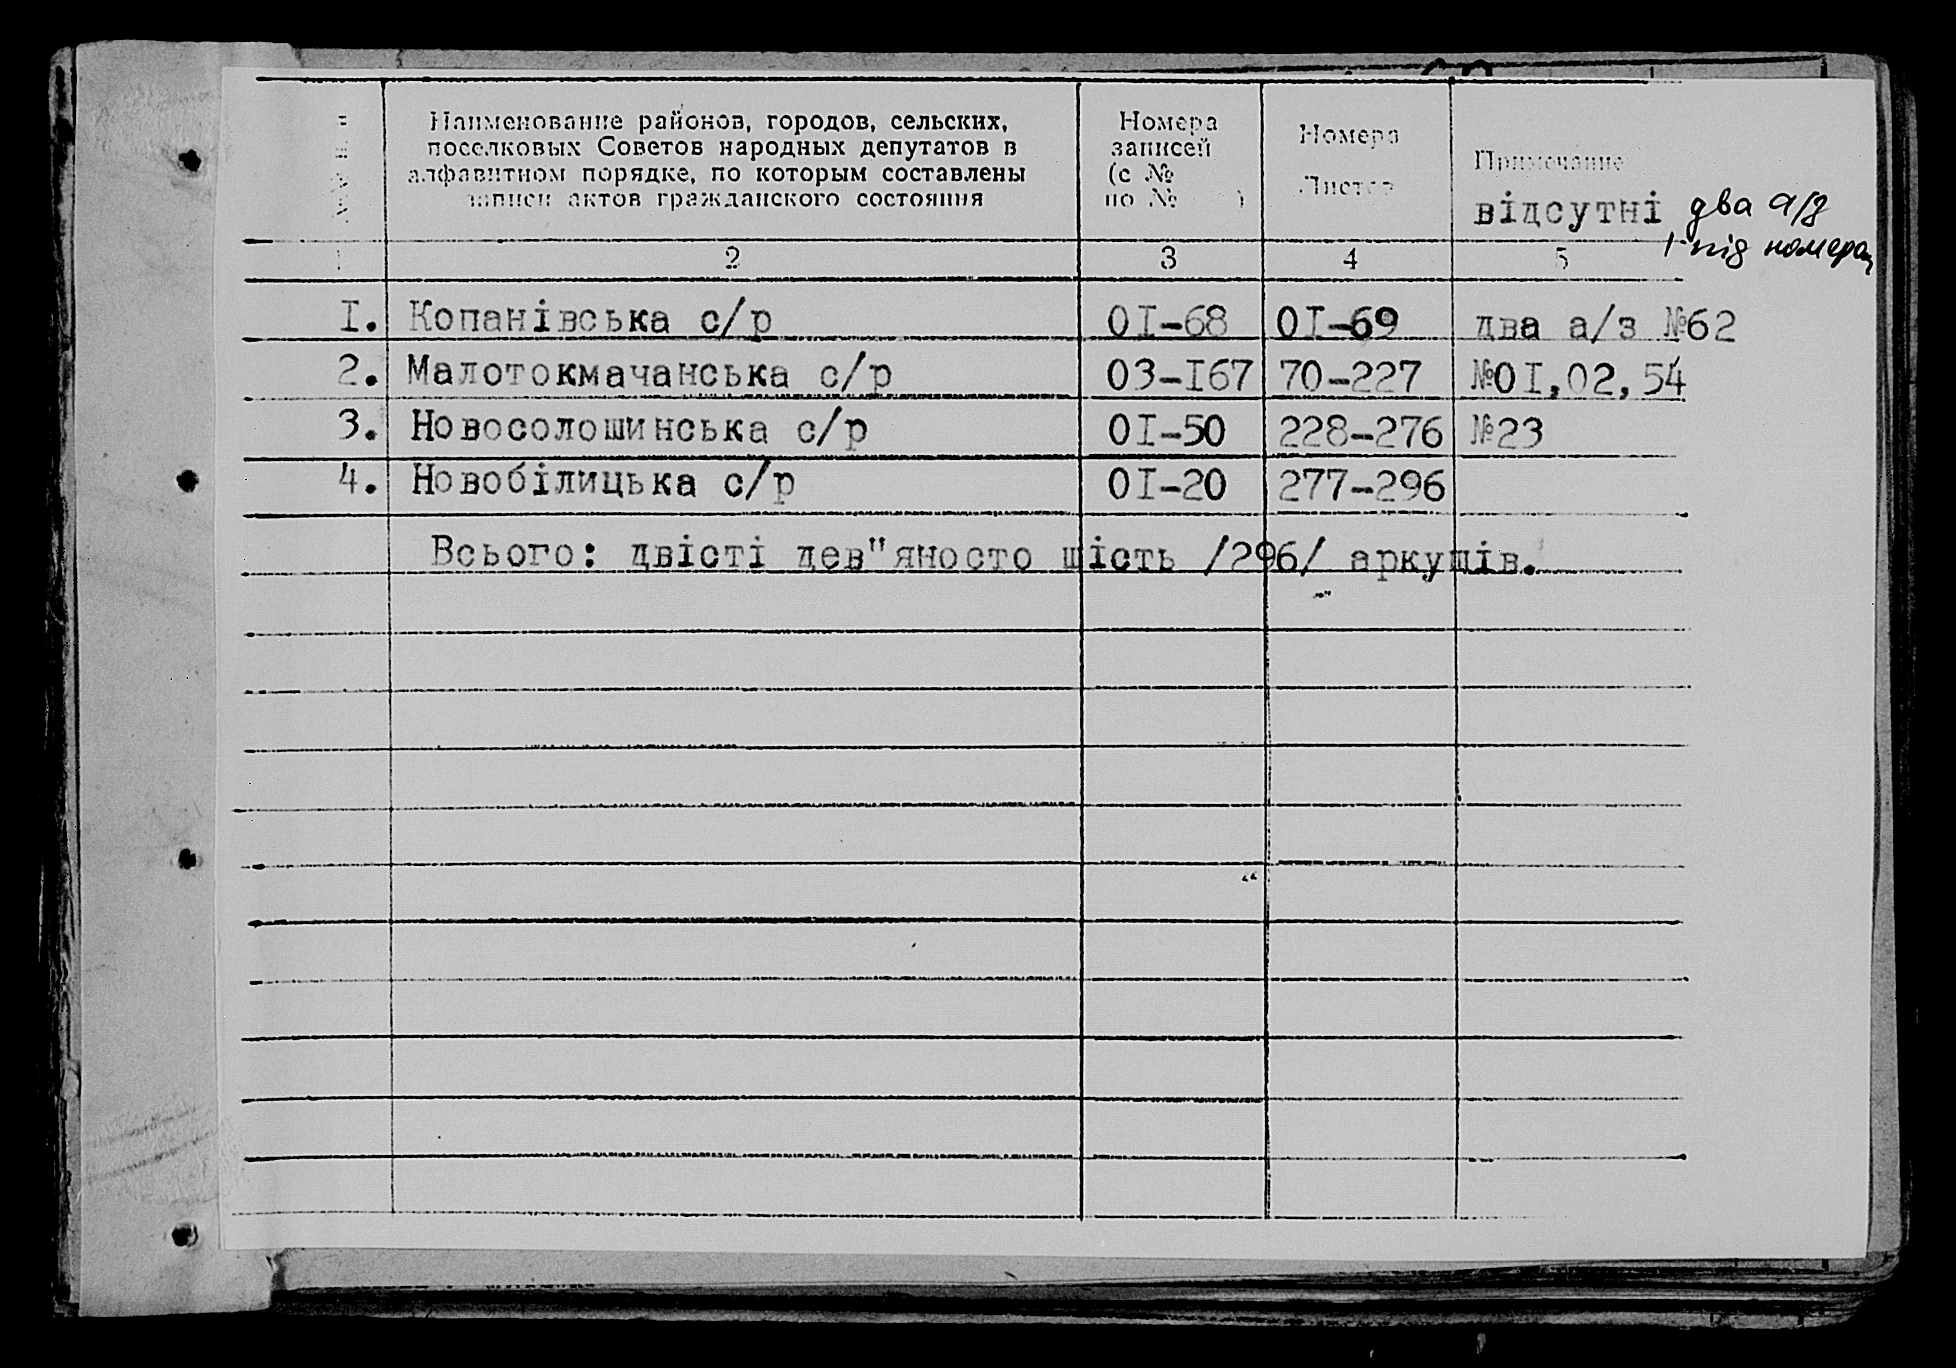 Наименование районов, городов, сельских,
поселковых Советов народных депутатов в
алфавитном порядке, по которым составлены
записи актов гражданского состояния
Номера
записей
(с №
по № )
Номера
Листов
Примечание
відсутні два а/з
під номером
2 3 4 5
I. Копанівська с/р 0I-68 0I-69 два а/з №62
2. Малотокмачанська с/р 03-I67 70-227 №0I,02,54
3. Новосолошинська с/р 0I-50 228-276 №23
4. Новобілицька с/р 0I-20 277-296
Всього: двісті дев"яносто шість /296/ аркушів.